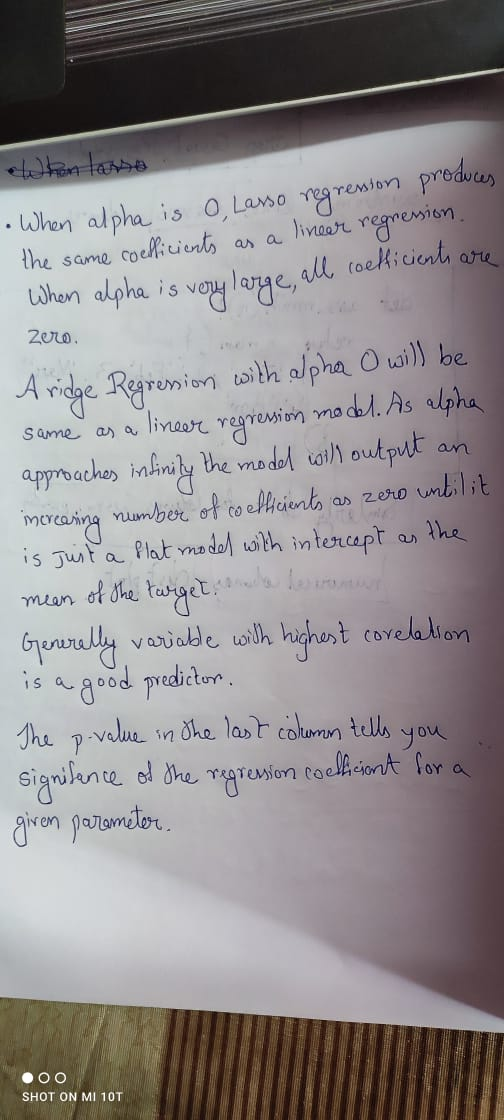 • When lasso
• When alpha is 0, Lasso regression produces
the same coefficients as a linear regression.
When alpha is very large, all coefficients are
zero.
A ridge Regression with alpha 0 will be
same as a linear regression model. As alpha
approaches infinity the model will output an
increasing number of coefficients as zero until it
is just a flat model with intercept as the
mean of the target.
Generally variable with highest corelation
is a good predictor.
The p-value in the last column tells you
signifance of the regression coefficient for a
given parameter.
SHOT ON MI 10T